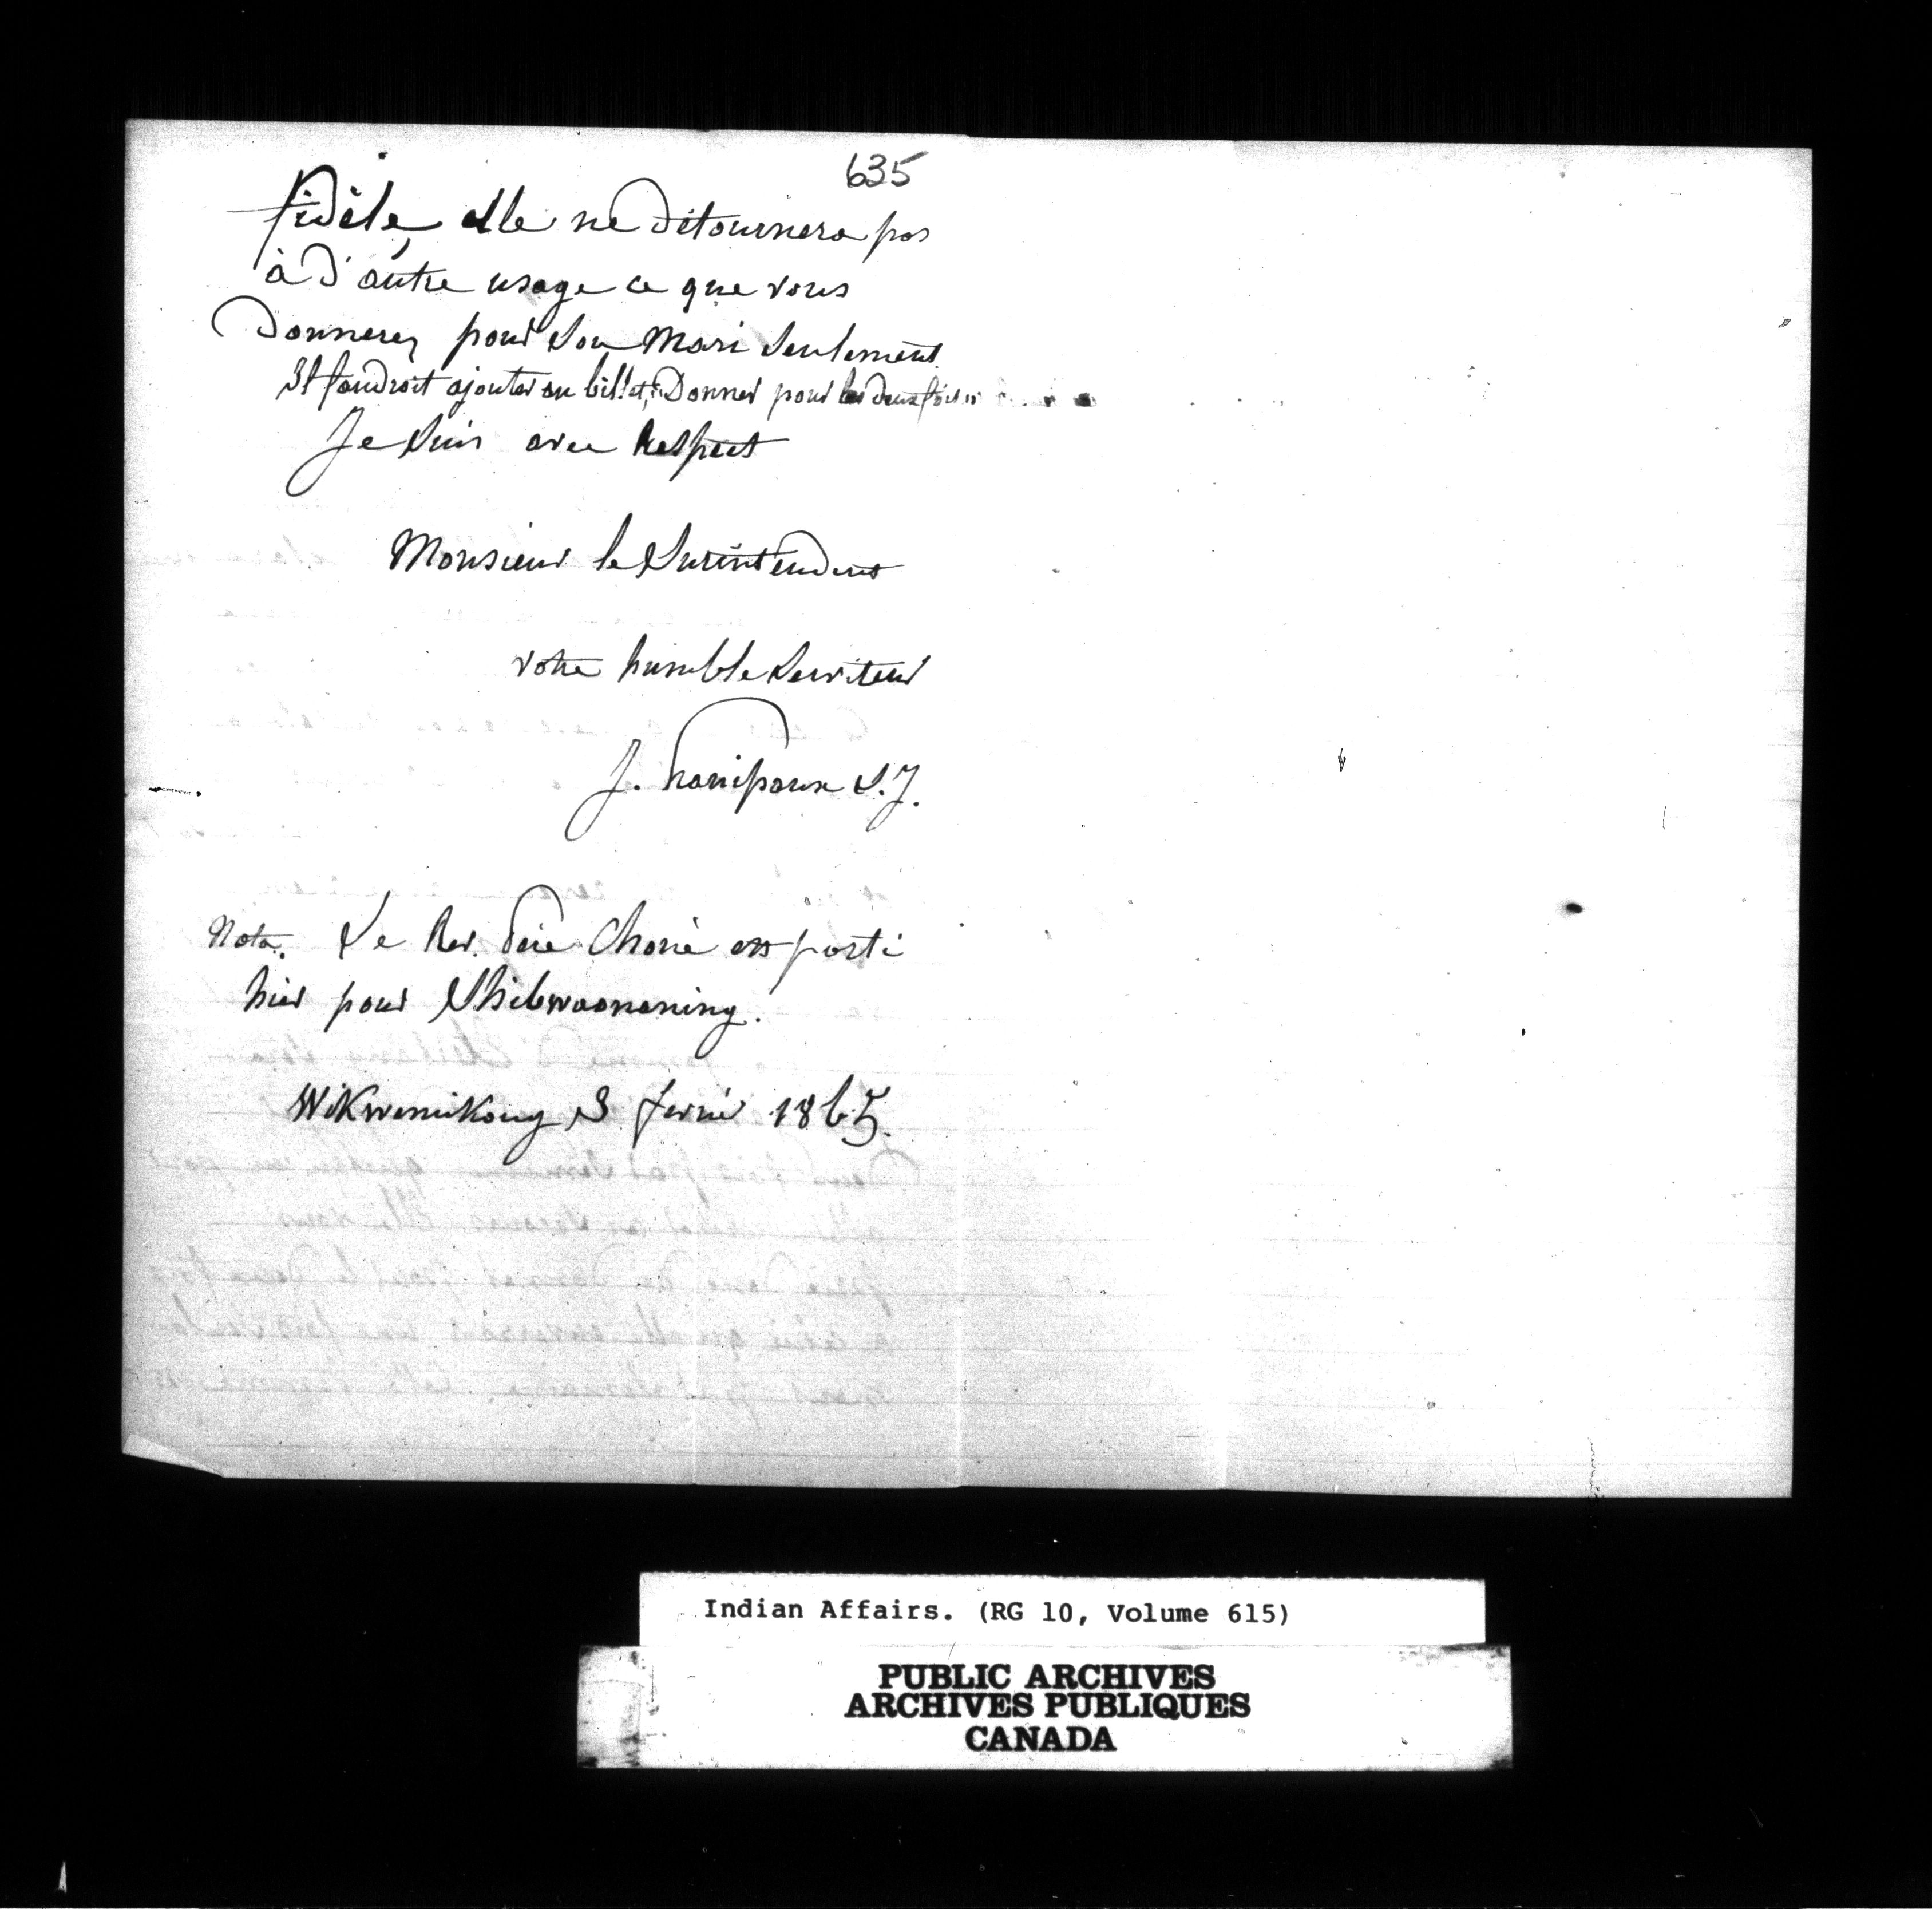 635
fidèle, elle ne détournera pas
à d'autre usage ce que vous
donnerez pour son mari seulement.
Il faudroit ajouter au billet, Donner pour les deux fois
Je suis avec respect
Monsieur le Surintendent
votre humble serviteur
J. hanipaux S.J.
Nota. Le Rev. Père Choné est parti
hier pour Shibwaonaning.
Wikwemikong 3 fevrié 1865.
Indian Affairs. (RG 10, Volume 615)
PUBLIC ARCHIVES
ARCHIVES PUBLIQUES
CANADA